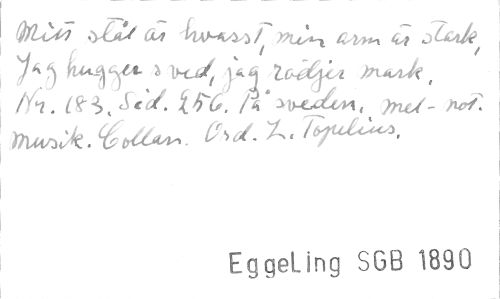 Mitt stål är hvasst, min arm är stark,
Jag hugger sved, jag rödjer mark.
Nr. 183. Sid. 256. På sveden. met-not.
musik. Collan. Ord. Z. Topelius.
EggeLing SGB 1890